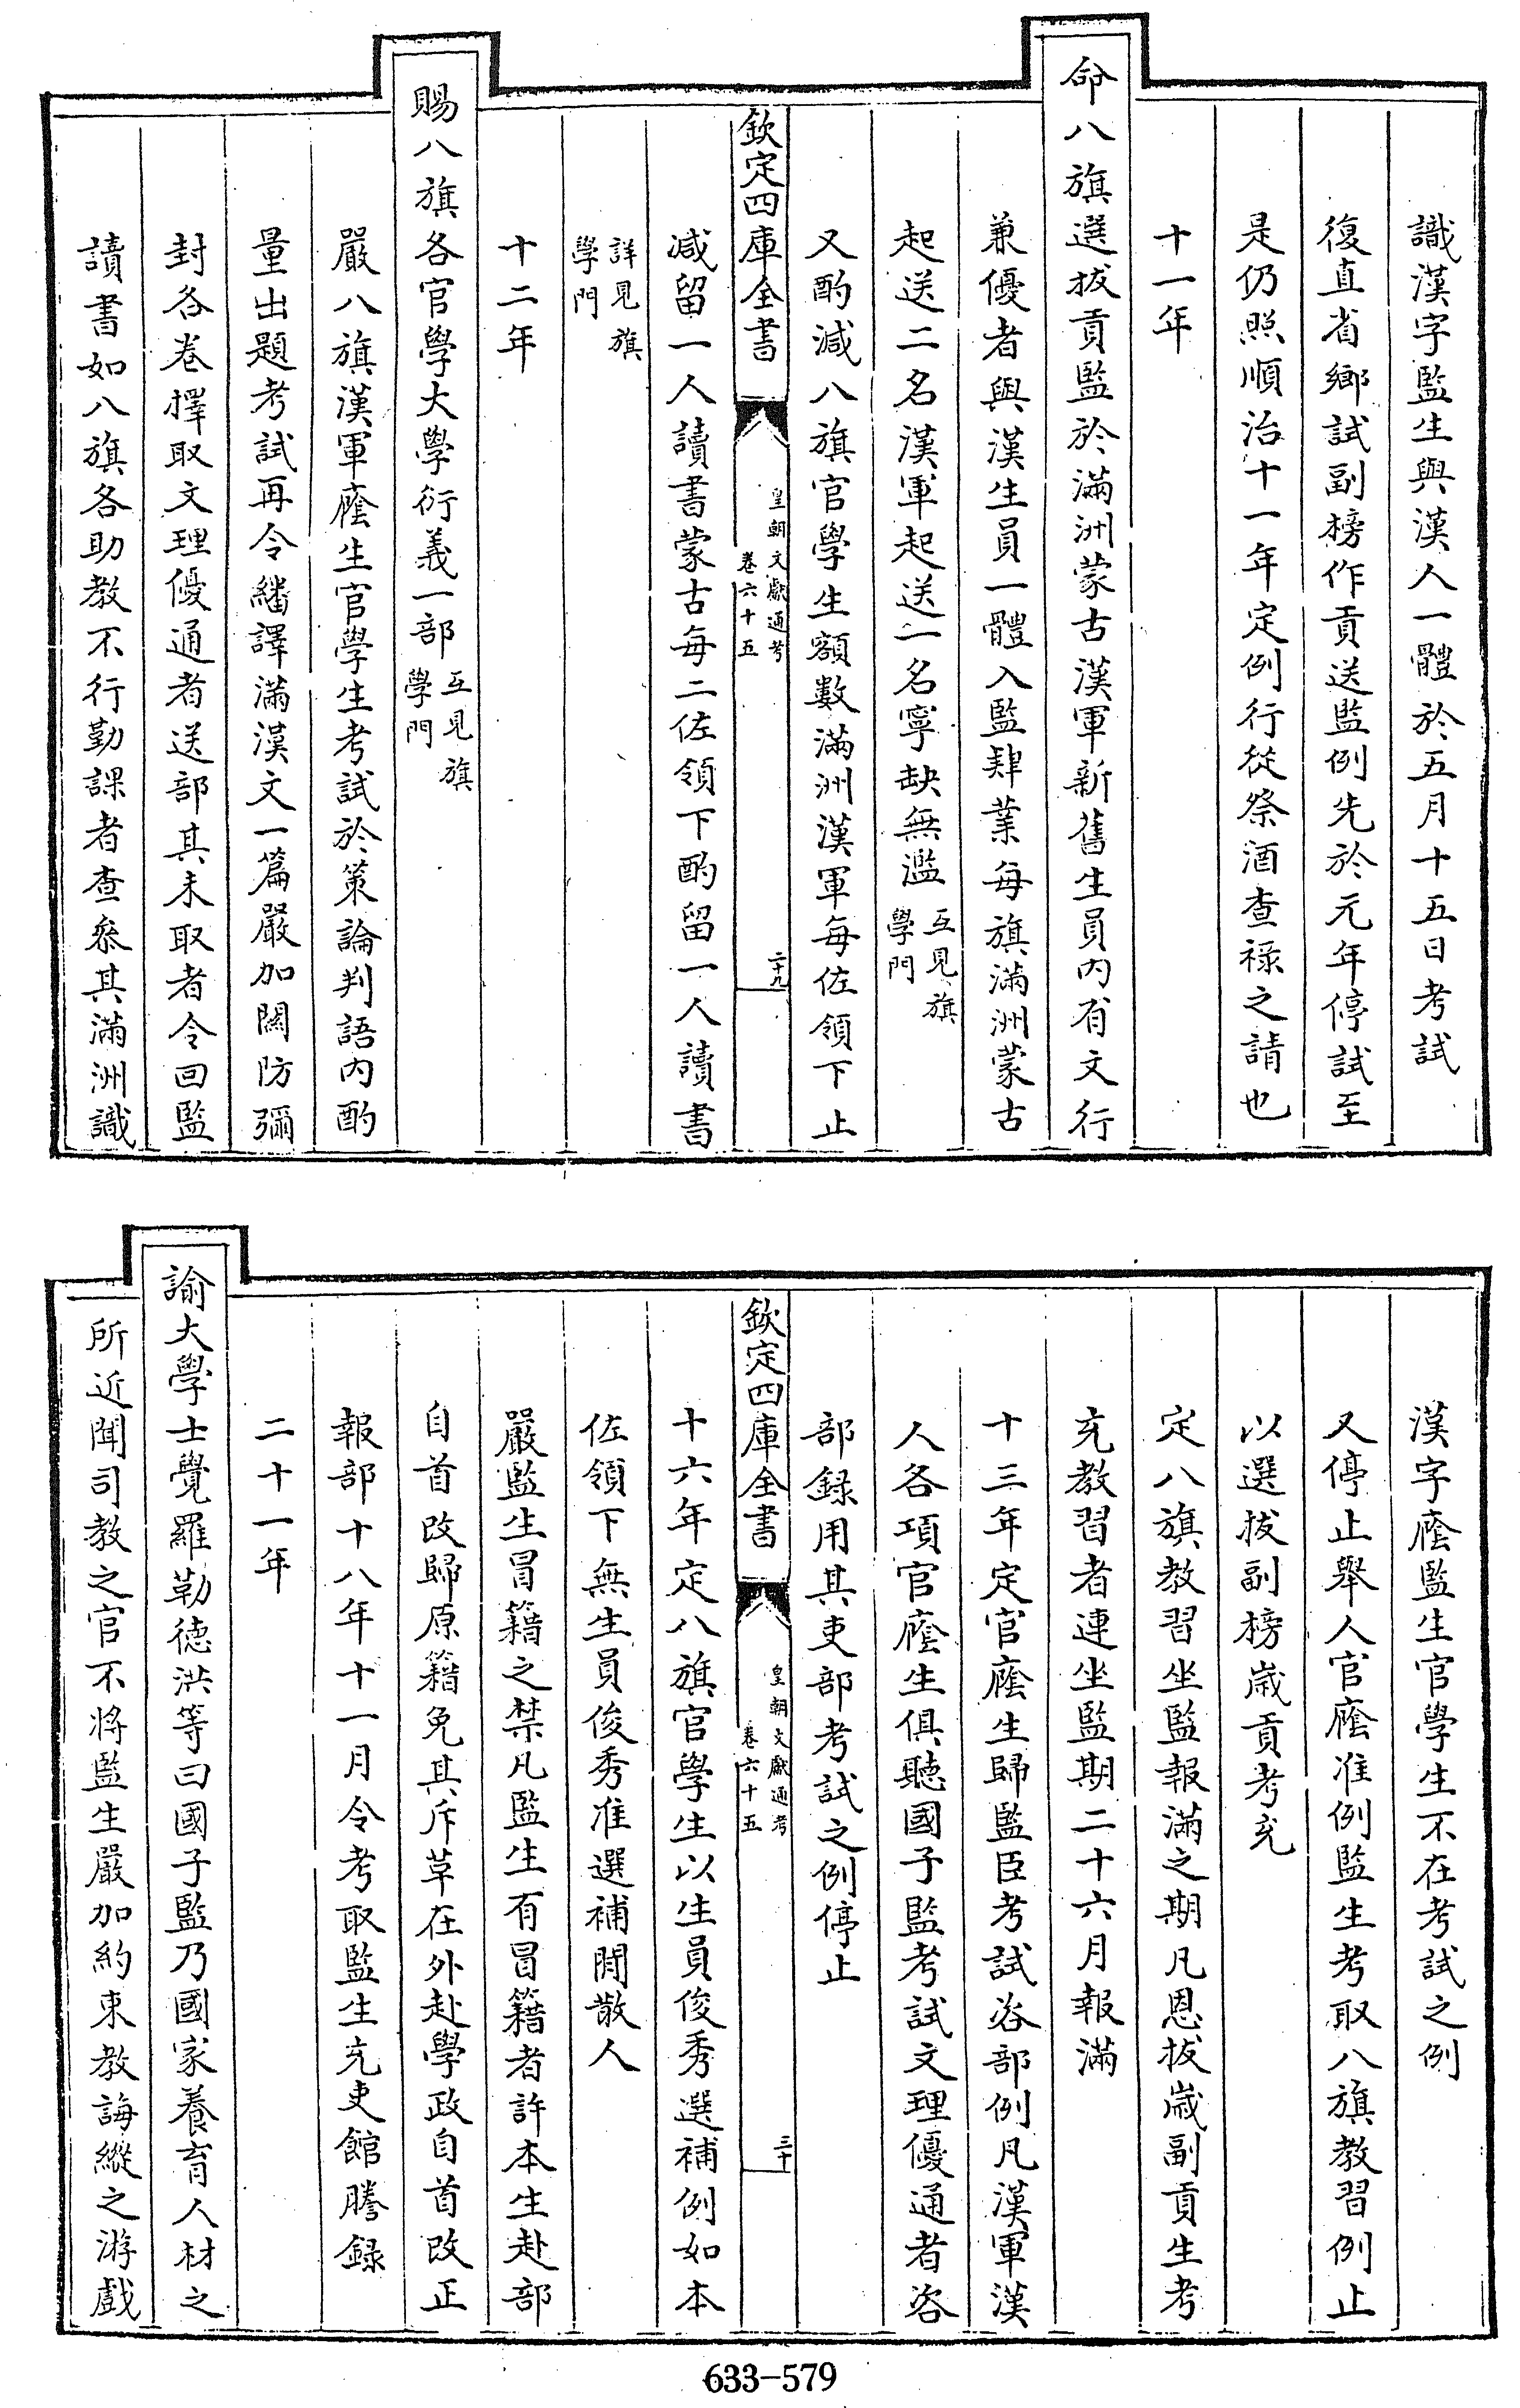 識漢字監生與漢人一體於五月十五日考試
復直省鄉試副榜作貢送監例先於元年停試至
是仍照順治十一年定例行從祭酒查祿之請也
十一年
命八旗選拔貢監於滿洲蒙古漢軍新舊生員内有文行
兼優者與漢生員一體入監肄業每旗滿洲蒙古
起送二名漢軍起送一名寧缺無濫互見旗學門
又酌減八旗官學生額數滿洲漢軍每佐領下止
欽定四庫全書
皇朝文獻通考
卷六十五
二十九
減留一人讀書蒙古每二佐領下酌留一人讀書
詳見旗學門
十二年
賜八旗各官學大學衍義一部互見旗學門
嚴八旗漢軍廕生官學生考試於策論判語内酌
量出題考試再令繙譯滿漢文一篇嚴加關防彌
封各卷擇取文理優通者送部其未取者令回監
讀書如八旗各助教不行勤課者查叅其滿洲識
漢字廕監生官學生不在考試之例
又停止舉人官廕准例監生考取八旗教習例止
以選拔副榜歲貢考充
定八旗教習坐監報滿之期凡恩拔歲副貢生考
充教習者連坐監期二十六月報滿
十三年定官廕生歸監臣考試咨部例凡漢軍漢
人各項官廕生俱聽國子監考試文理優通者咨
部錄用其吏部考試之例停止
欽定四庫全書
皇朝文獻通考
卷六十五
三十
十六年定八旗官學生以生員俊秀選補例如本
佐領下無生員俊秀准選補閒散人
嚴監生冒籍之禁凡監生有冒籍者許本生赴部
自首改歸原籍免其斥革在外赴學政自首改正
報部十八年十一月令考取監生充吏館謄錄
二十一年
諭大學士覺羅勒德洪等曰國子監乃國家養育人材之
所近聞司教之官不將監生嚴加約束教誨縱之游戲
633-579